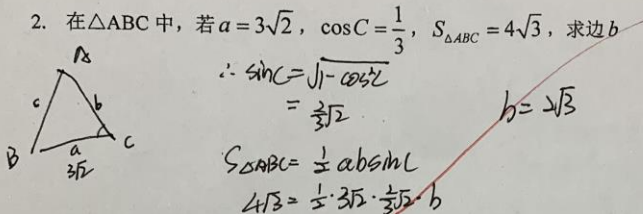 2. 在△ABC 中，若 a = 3√2， cosC = 1/3， S△ABC = 4√3，求边 b
A
c
b
B
a
C
3√2
∴ sinC = √(1-cos²C)
= 2/3√2
S△ABC = 1/2 absinC
4√3 = 1/2 · 3√2 · 2/3√2 · b
b = 2√3